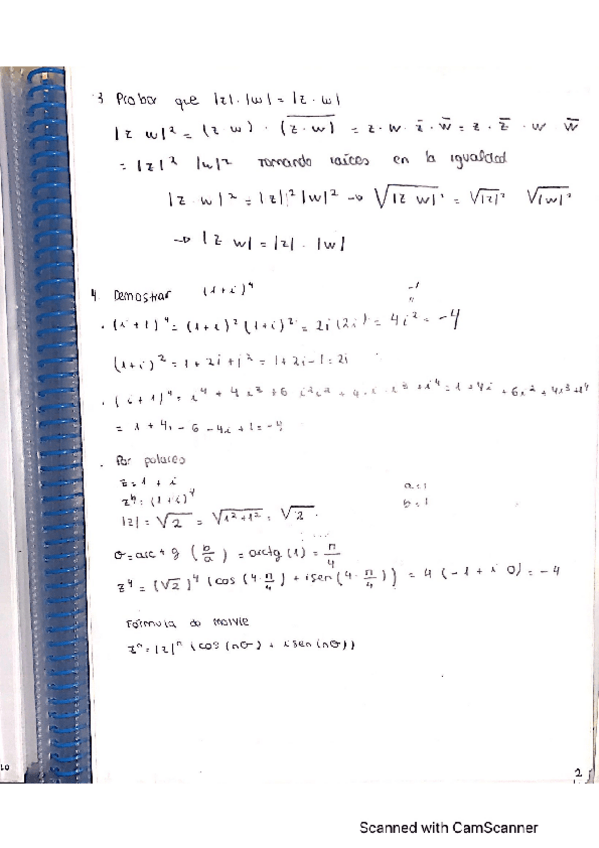 3 Probar que |z|·|w| = |z·w|
|z w|² = (z·w)·(\overline{z·w}) = z·w·z̄·w̄ = z·z̄·w·w̄
= |z|² |w|² tomando raíces en la igualdad
|z·w|² = |z|²|w|² → √|z w|² = √|z|² √|w|²
→ |z w| = |z|·|w|
4. Demostrar (1+i)⁴
-1
· (i+1)⁴ = (1+i)²(1+i)² = 2i(2i) = 4i² = -4
(1+i)² = 1+2i+i² = 1+2i-1 = 2i
= 1+4i-6-4i+1 = -4
· Por polares
z = 1+i
a=1
z⁴ = (1+i)⁴
b=1
|z| = √2 = √1²+1² = √2.
σ = arctg (b/a) = arctg(1) = π/4
z⁴ = (√2)⁴ (cos(4·π/4) + i sen(4·π/4)) = 4(-1+i 0) = -4
Formula de moivre
zⁿ = |z|ⁿ (cos(nσ) + i sen(nσ))
10
2
Scanned with CamScanner